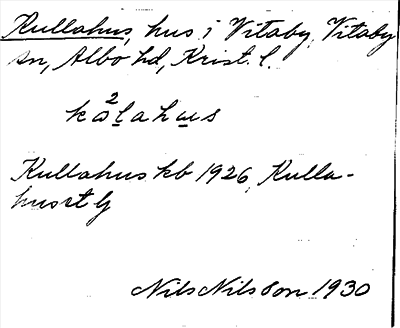 Kullahus, hus i Vitaby, Vitaby
sn, Albo hd, Krist. l.
kω²lahus
Kullahus kb 1926, Kulla-
husrt G
Nils Nilsson 1930